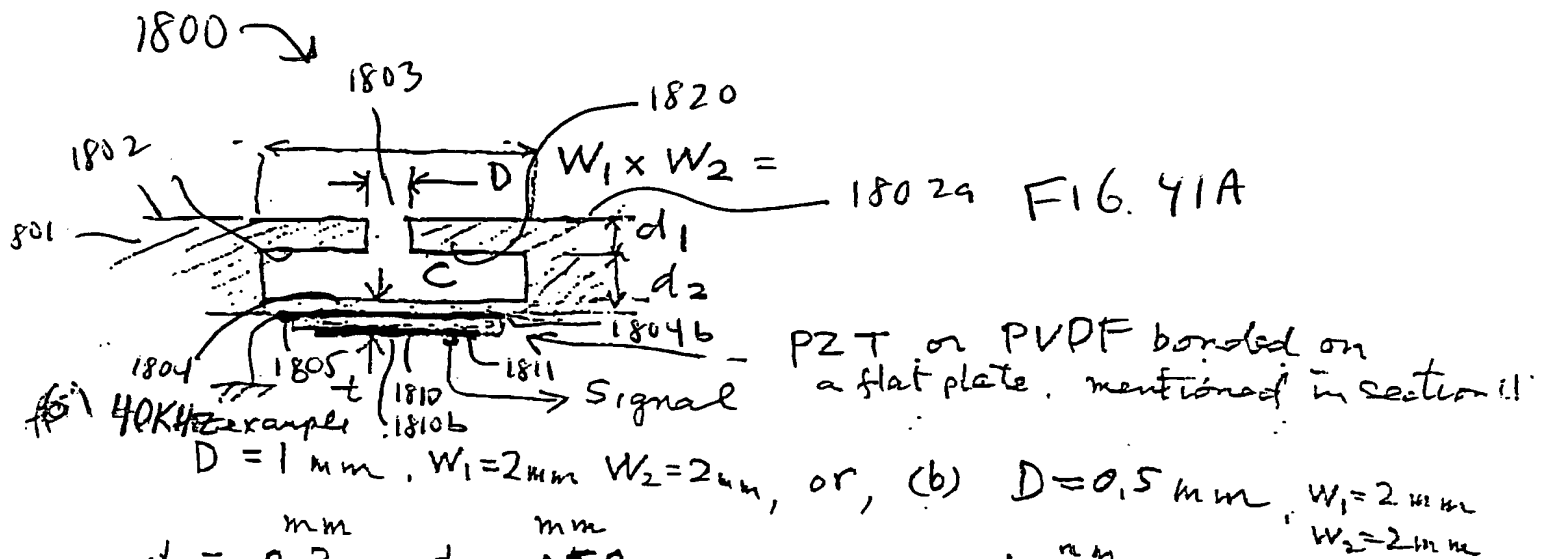 1800
1803
1820
1802
D
W₁ × W₂ =
1802a FIG. 41A
801
d₁
C
d₂
1804b
1804
1805
t
1810
1811
1810b
Signal
PZT or PVDF bonded on
a flat plate. mentioned in section 11
40KHz example
D = 1 mm, W₁=2mm W₂=2mm, or, (b) D=0.5 mm, W₁=2mm
W₂=2mm
mm mm mm